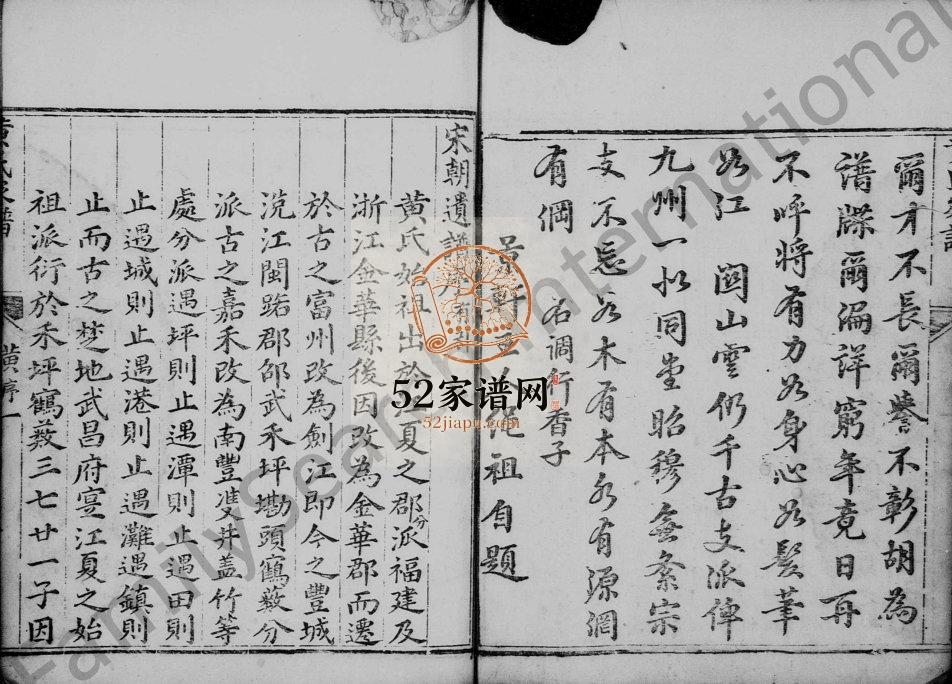 爾才不長爾譽不彰胡為
譜牒爾漏詳窮年竟日再
不呼將有力如身心如髮華
如江 關山雲仍千古支派俾
九州一水同堂昭穆無紊宗
支不忘如木有本水有源網
有綱 右調行香子
祖自題
宋朝遺譜
黃氏始祖出於夏之郡分派福建及
浙江金華縣後因改為金華郡而遷
於古之富州改為劍江即今之豐城
況江閩踞郡邵武禾坪墈頭鶴薮分
派古之嘉禾改為南豐雙井盖竹等
處分派遇坪則止遇潭則止遇田則
止遇城則止遇港則止遇灘遇鎮則
止而古之楚地武昌府寔江夏之始
祖派衍於禾坪鶴薮三七廿一子因
黃氏家譜
黃序一
52家谱网
52jiapu.com
FamilySearch International